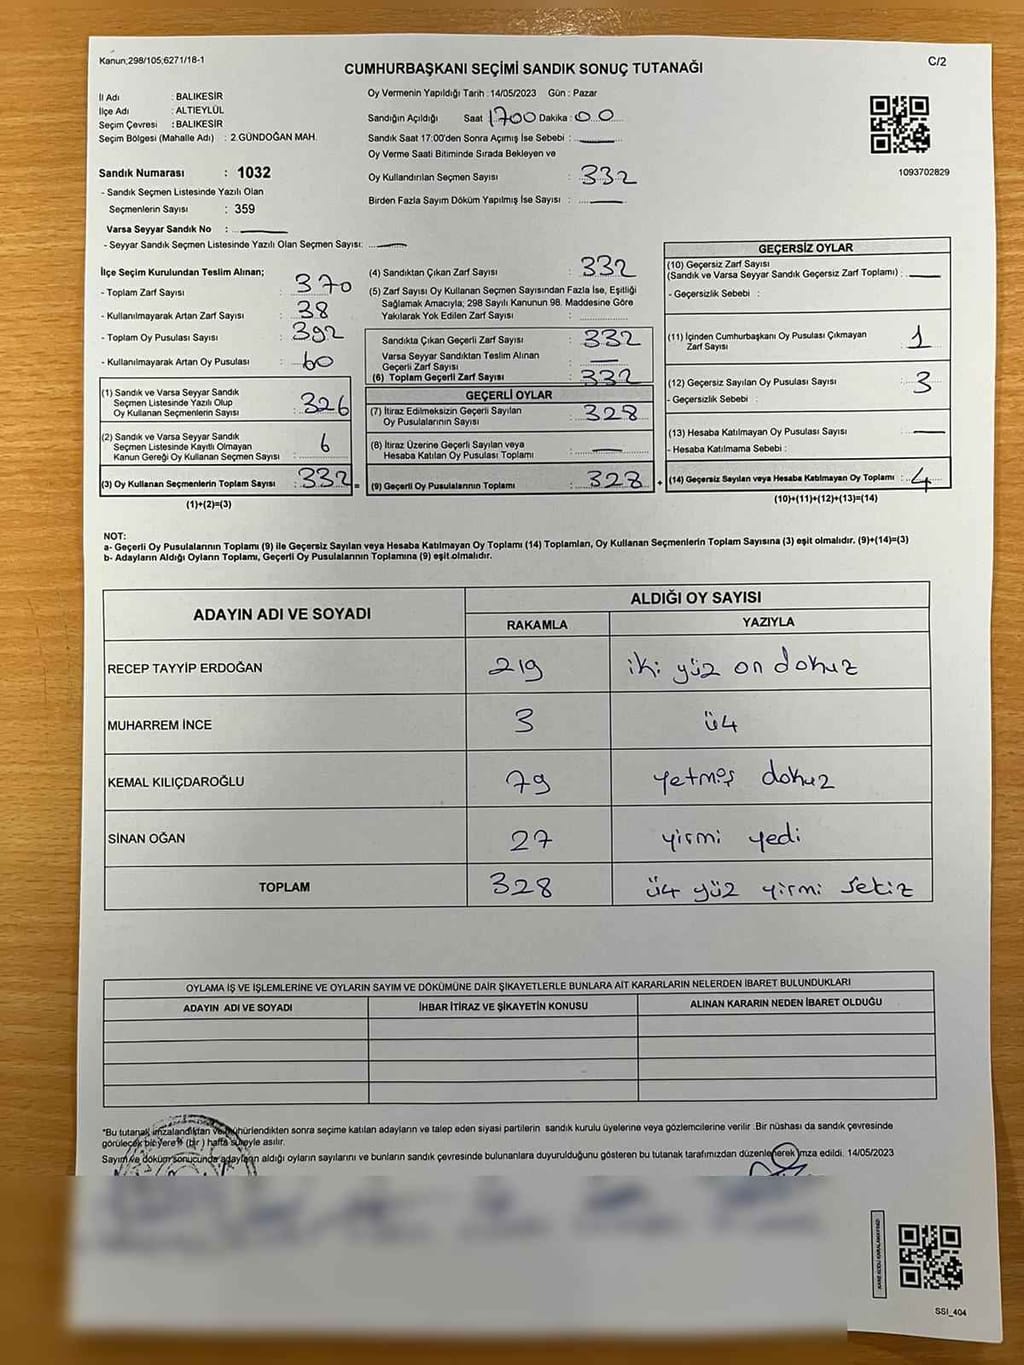 Kanun;298/105;6271/18-1
C/2
CUMHURBAŞKANI SEÇİMİ SANDIK SONUÇ TUTANAĞI
İl Adı : BALIKESİR
İlçe Adı : ALTIEYLÜL
Seçim Çevresi : BALIKESİR
Seçim Bölgesi (Mahalle Adı) : 2.GÜNDOĞAN MAH.
Sandık Numarası : 1032
- Sandık Seçmen Listesinde Yazılı Olan
Seçmenlerin Sayısı : 359
Varsa Seyyar Sandık No :
- Seyyar Sandık Seçmen Listesinde Yazılı Olan Seçmen Sayısı:
Oy Vermenin Yapıldığı Tarih : 14/05/2023 Gün : Pazar
Sandığın Açıldığı Saat 1700 Dakika : 00
Sandık Saat 17:00'den Sonra Açımış İse Sebebi :
Oy Verme Saati Bitiminde Sırada Bekleyen ve
Oy Kullandırılan Seçmen Sayısı : 332
Birden Fazla Sayım Döküm Yapılmış İse Sayısı :
1093702829
İlçe Seçim Kurulundan Teslim Alınan;
- Toplam Zarf Sayısı : 370
- Kullanılmayarak Artan Zarf Sayısı : 38
- Toplam Oy Pusulası Sayısı : 392
- Kullanılmayarak Artan Oy Pusulası : 60
(1) Sandık ve Varsa Seyyar Sandık
Seçmen Listesinde Yazılı Olup
Oy Kullanan Seçmenlerin Sayısı : 326
(2) Sandık ve Varsa Seyyar Sandık
Seçmen Listesinde Kayıtlı Olmayan
Kanun Gereği Oy Kullanan Seçmen Sayısı : 6
(3) Oy Kullanan Seçmenlerin Toplam Sayısı : 332 =
(1)+(2)=(3)
(4) Sandıktan Çıkan Zarf Sayısı : 332
(5) Zarf Sayısı Oy Kullanan Seçmen Sayısından Fazla İse, Eşitliği
Sağlamak Amacıyla; 298 Sayılı Kanunun 98. Maddesine Göre
Yakılarak Yok Edilen Zarf Sayısı :
Sandıkta Çıkan Geçerli Zarf Sayısı : 332
Varsa Seyyar Sandıktan Teslim Alınan
Geçerli Zarf Sayısı :
(6) Toplam Geçerli Zarf Sayısı : 332
GEÇERLİ OYLAR
(7) İtiraz Edilmeksizin Geçerli Sayılan
Oy Pusulalarının Sayısı : 328
(8) İtiraz Üzerine Geçerli Sayılan veya
Hesaba Katılan Oy Pusulası Toplamı :
(9) Geçerli Oy Pusulalarının Toplamı : 328 +
GEÇERSİZ OYLAR
(10) Geçersiz Zarf Sayısı
(Sandık ve Varsa Seyyar Sandık Geçersiz Zarf Toplamı) :
- Geçersizlik Sebebi :
(11) İçinden Cumhurbaşkanı Oy Pusulası Çıkmayan
Zarf Sayısı : 1
(12) Geçersiz Sayılan Oy Pusulası Sayısı : 3
- Geçersizlik Sebebi :
(13) Hesaba Katılmayan Oy Pusulası Sayısı :
- Hesaba Katılmama Sebebi :
(14) Geçersiz Sayılan veya Hesaba Katılmayan Oy Toplamı : 4
(10)+(11)+(12)+(13)=(14)
NOT:
a- Geçerli Oy Pusulalarının Toplamı (9) ile Geçersiz Sayılan veya Hesaba Katılmayan Oy Toplamı (14) Toplamları, Oy Kullanan Seçmenlerin Toplam Sayısına (3) eşit olmalıdır. (9)+(14)=(3)
b- Adayların Aldığı Oyların Toplamı, Geçerli Oy Pusulalarının Toplamına (9) eşit olmalıdır.
ADAYIN ADI VE SOYADI
ALDIĞI OY SAYISI
RAKAMLA YAZIYLA
RECEP TAYYİP ERDOĞAN 219 iki yüz on dokuz
MUHARREM İNCE 3 üç
KEMAL KILIÇDAROĞLU 79 yetmiş dokuz
SİNAN OĞAN 27 yirmi yedi
TOPLAM 328 üç yüz yirmi sekiz
OYLAMA İŞ VE İŞLEMLERİNE VE OYLARIN SAYIM VE DÖKÜMÜNE DAİR ŞİKAYETLERLE BUNLARA AİT KARARLARIN NELERDEN İBARET BULUNDUKLARI
ADAYIN ADI VE SOYADI İHBAR İTİRAZ VE ŞİKAYETİN KONUSU ALINAN KARARIN NEDEN İBARET OLDUĞU
"Bu tutanak imzalandıktan ve mühürlendikten sonra seçime katılan adayların ve talep eden siyasi partilerin sandık kurulu üyelerine veya gözlemcilerine verilir .Bir nüshası da sandık çevresinde
görülecek bir yere (bir ) hafta süreyle asılır.
Sayım ve döküm sonucunda adayların aldığı oyların sayılarını ve bunların sandık çevresinde bulunanlara duyurulduğunu gösteren bu tutanak tarafımızdan düzenlenerek imza edildi. 14/05/2023
SSI_404